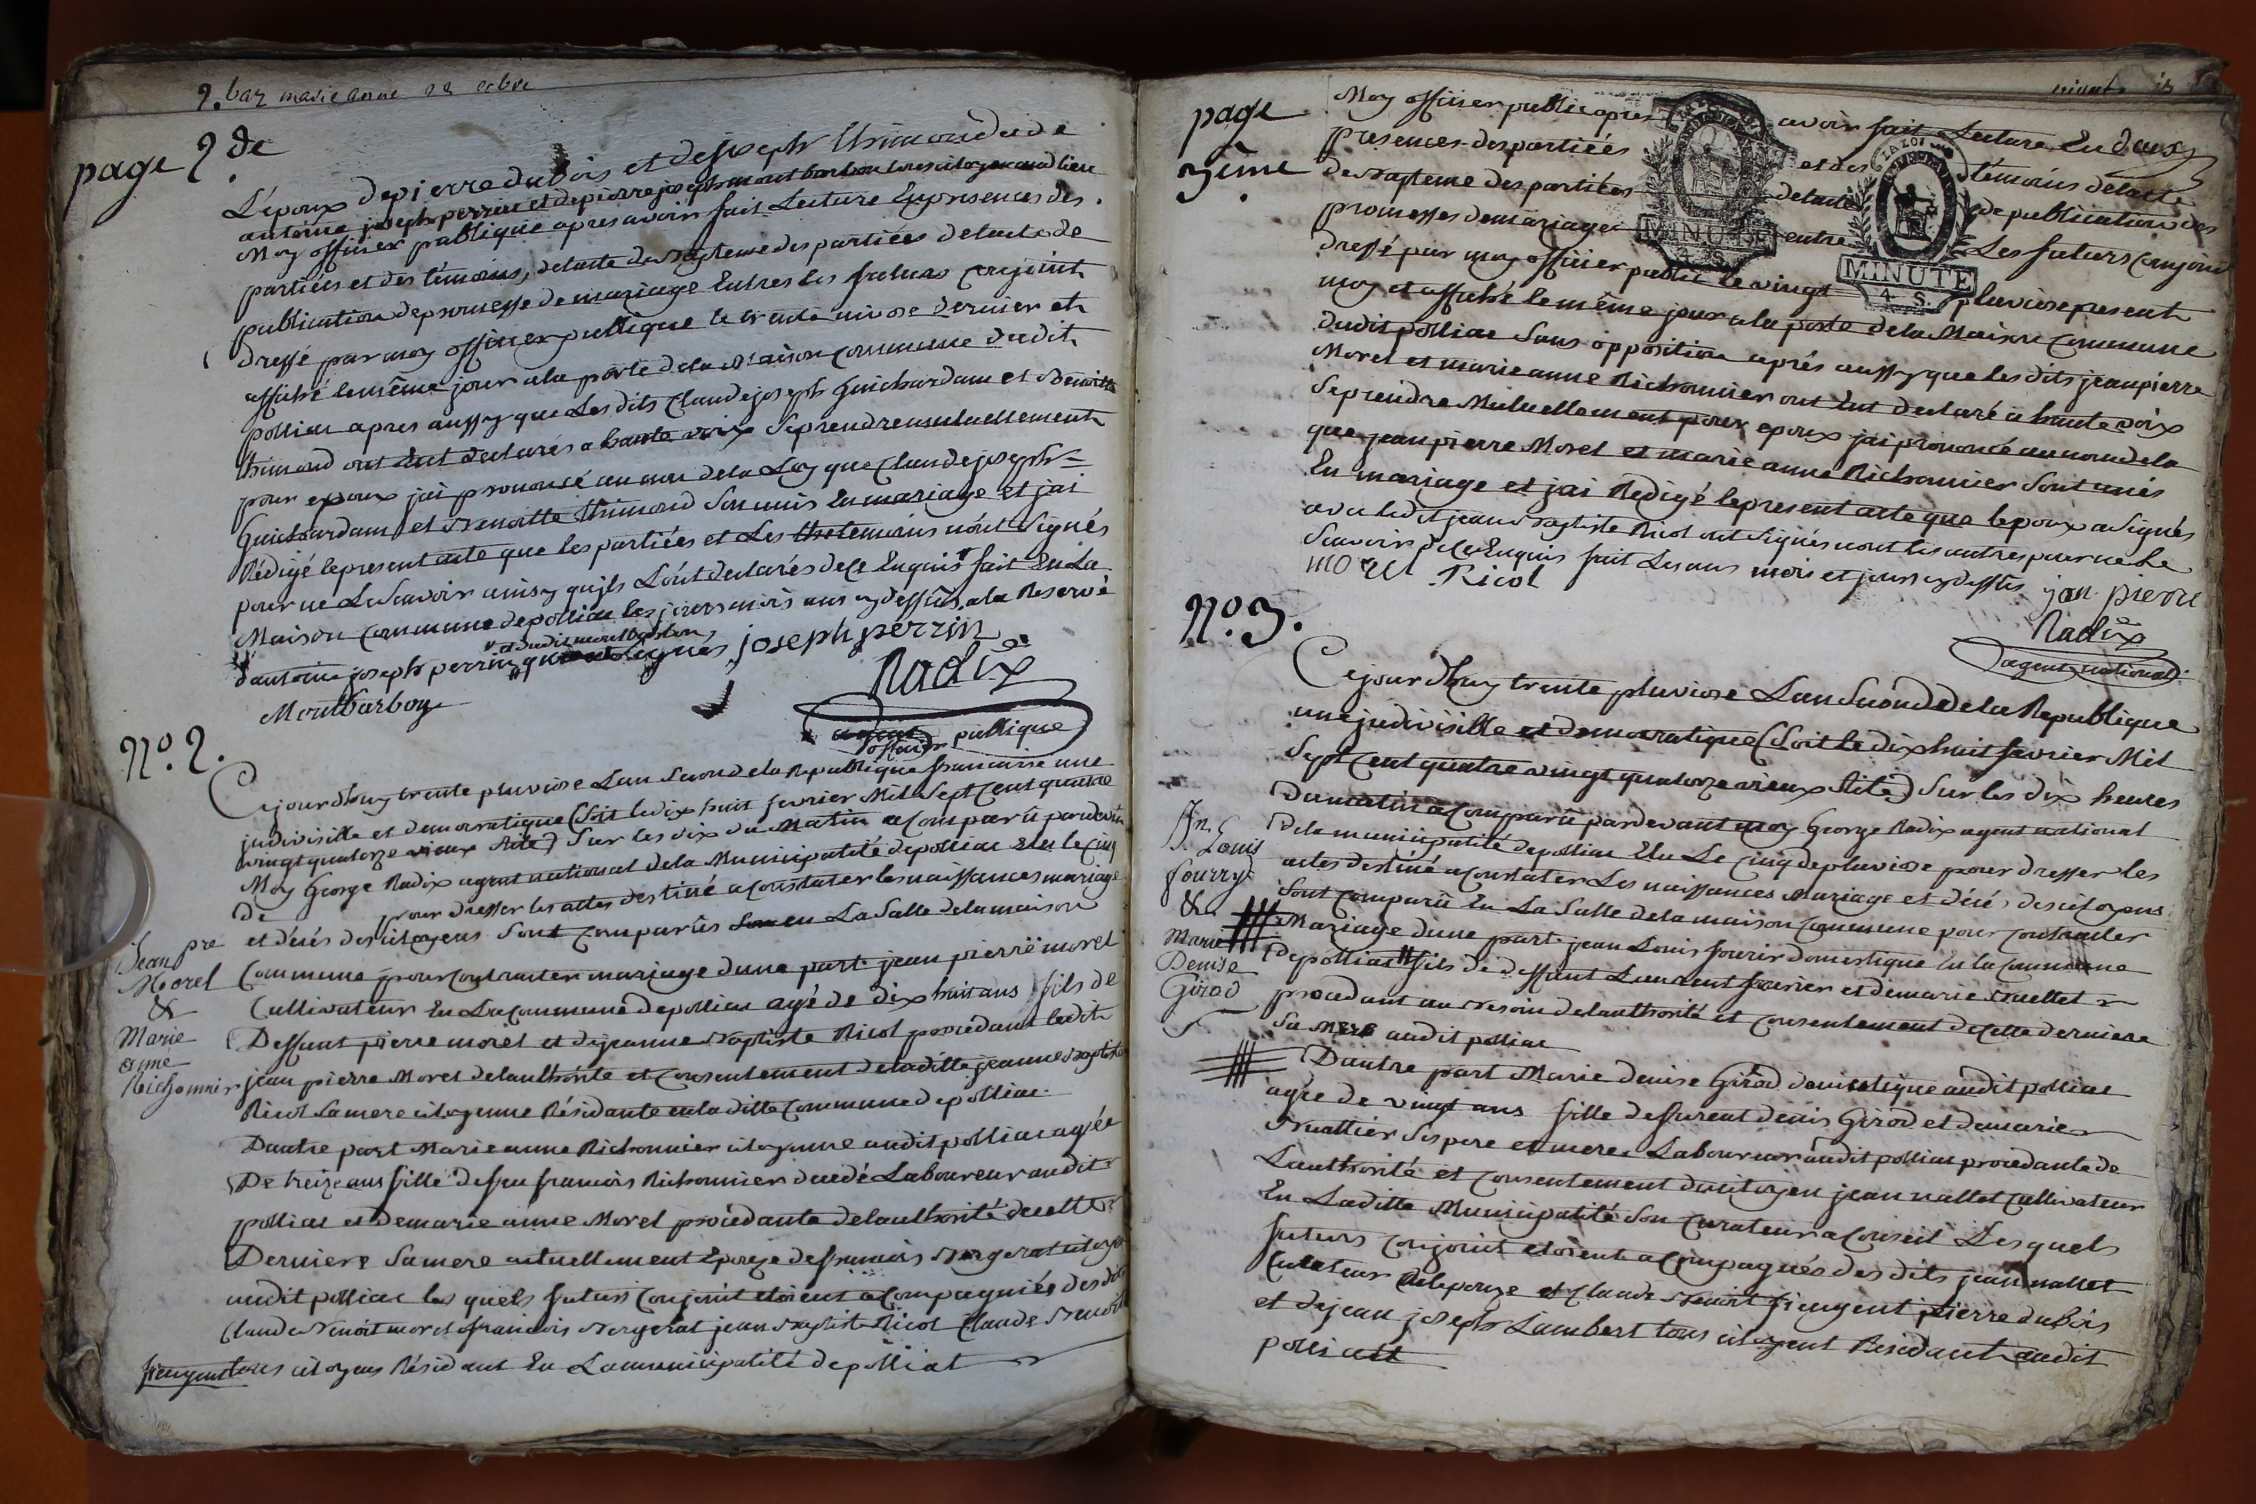 2. baz marie anne 22 octbre
page 2 de
L'époux de pierre dubois et de joseph thimond de
antoine joseph perrin et de pierre joseph montbarbon tous citoyens audi lieu
Moy officier publique apres avoir fait Lecture En presences des
parties et des témoins, de lacte de Napteme des partiées de lacte de
publication de promesse de mariage Entres les futurs conjoint
dressé par moy officier publique le trente nivose dernier et
affiché le même jour a la porte de la Maison Commune dudit
polliac apres aussy que Les dits Claude joseph Guichardam et Benoitte
thimond ont Eut declarés a haute voix Se prendre mutuellement
pour époux jai prononcé au nom de la Loy que Claude joseph
Guichardam et Benoitte thimond Son unis En mariage et jai
Rédigé le present acte que les partiées et Les temoins nont Signés
pour ne Le Scavoir ainsy quils Lont declarés de ce Enquis fait En La
Maison Commune de polliac les jours mois ans cy dessus, a la Reservé
d'antoine joseph perrin et dudit montbarbon qui ont Signés joseph perrin
Montbarbon
Radix
officier publique
No. 2.
Cejourdhuy trente pluviose Lan Second de la Republique francaise une
indivisible et democratique (Soit le dix huit fevrier Mil Sept Cent quatre
vingt quatorze vieux Stile) Sur les dix du Matin a Comparû pardevant
Moy George Radix agent national de la Municipalité de polliac Elu le Cinq
de pour dresser les actes destiné a Constater les naissances mariage
et décés des citoyens Sont Comparûs en La Salle de la maison
Commune pour Contracter mariage dune part jean pierre morel
Cultivateur En La Commune de polliac agé de dix huit ans fils de
Deffunt pierre morel et de jeanne Baptiste Ricol procedant ledit
jean pierre Morel de lauthorité et Consentement de laditte jeanne Baptiste
Ricol Sa mere citoyenne Résidante en la ditte Commune de polliac.
Jean pre
Morel
&
Marie
anne
Richonnier
Dautre part Marie anne Richonnier citoyenne audit polliac agée
De treize ans fille de feu francois Richonnier decedé Laboureur audit
polliac et de marie anne Morel procédante de lauthorité de cette
Derniere Sa mere actuellement Epouze de francois Bergerat citoyen
audit polliac les quels futurs Conjoint étoient acompagniés des dits
Claude Benoit morel francois Bergerat jean Baptiste Ricol Claude Benoit
fiengent tous citoyens Résidant En La municipalité de polliat
page
3eme
Moy officier public apres avoir fait Lecture En deux
presences des partiées et des témoins de lacte
de Napteme des partiées de lacte de publication des
promesses de mariage entre Les futurs Conjoint
dressé par moy officier public le vingt pluviose present
moy et affiché le même jour a la porte de la Maison Commune
dudit polliac Sans opposition aprés aussy que les dits jean pierre
Morel et marie anne Richonnier ont Eut declaré a haute voix
Se prendre Mutuellement pour epoux jai prononcé au nom de la
que jean pierre Morel et marie anne Richonnier Sont unis
En mariage et jai Redigé le present acte que lepoux a Signés
avec ledit jean Baptiste Ricol ont Signés nont les autres pour ne Le
Scavoir de ce Enquis fait Les ans mois et jour cy dessus jan pierre
morel Ricol
LA LOI
MINUTE
4. S.
MINUTE
4. S.
Radix
agent national
No. 3.
Cejourdhuy trente pluviose Lan Second de la Republique
une indivisible et democratique (Soit le dix huit fevrier Mil
Sept Cent quatre vingt quatorze vieux Stile) Sur les dix heures
du matin a Comparû pardevant moy George Radix agent national
de la municipalité de polliac Elu Le Cinq de pluviose pour dresser les
actes destiné a Constater Les naissances Mariage et décés des citoyens
Sont Comparû En La Salle de la maison Commune pour Contracter
Mariage dune part jean Louis fourier domestique En la Commune
de polliac fils de deffunt Laurent fourier et de marie Nuellet
procedant au Besoin de lauthorité et Consentement de cette derniere
Sa Mere audit polliac
Jn. Louis
fourry
&
Marie
Denise
Girod
Dautre part Marie denise Girod domestique audit polliac
agée de vingt ans fille de furent denis Girod et de marie
Nuattier Ses pere et mere Laboureur audit polliac procedante de
Lauthorité et Consentement du citoyen jean nallet Cultivateur
En Laditte Municipalité Son Curateur a Conseil Lesquels
futurs Conjoint etoient acompagnés des dits jean nallet
Curateur de lepouze et Claude Benoit fiengent pierre dubois
et de jean joseph Lambert tous citoyent Residant audit
polliatt